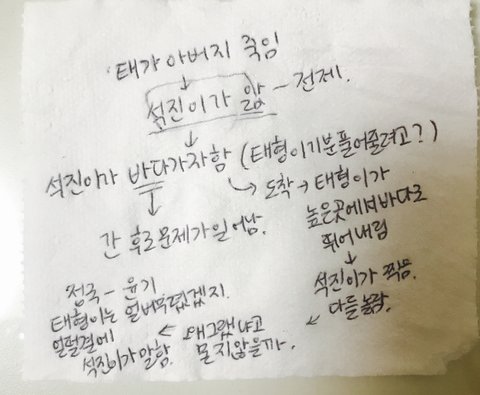 태가 아버지 죽임
↓
석진이가 앎 - 전제.
↓
석진이가 바다가자함 (태형이기분풀어줄려고?)
↳ 도착 → 태형이가
높은곳에서바다로
뛰어내림
↓
석진이가 찍음.
다들놀람.
↓
간 후로문제가일어남.
정국 - 윤기
태형이는 얼버무렸겠지.
얼떨결에
석진이가말함.
← 왜그랬냐고 ←
묻지않을까.